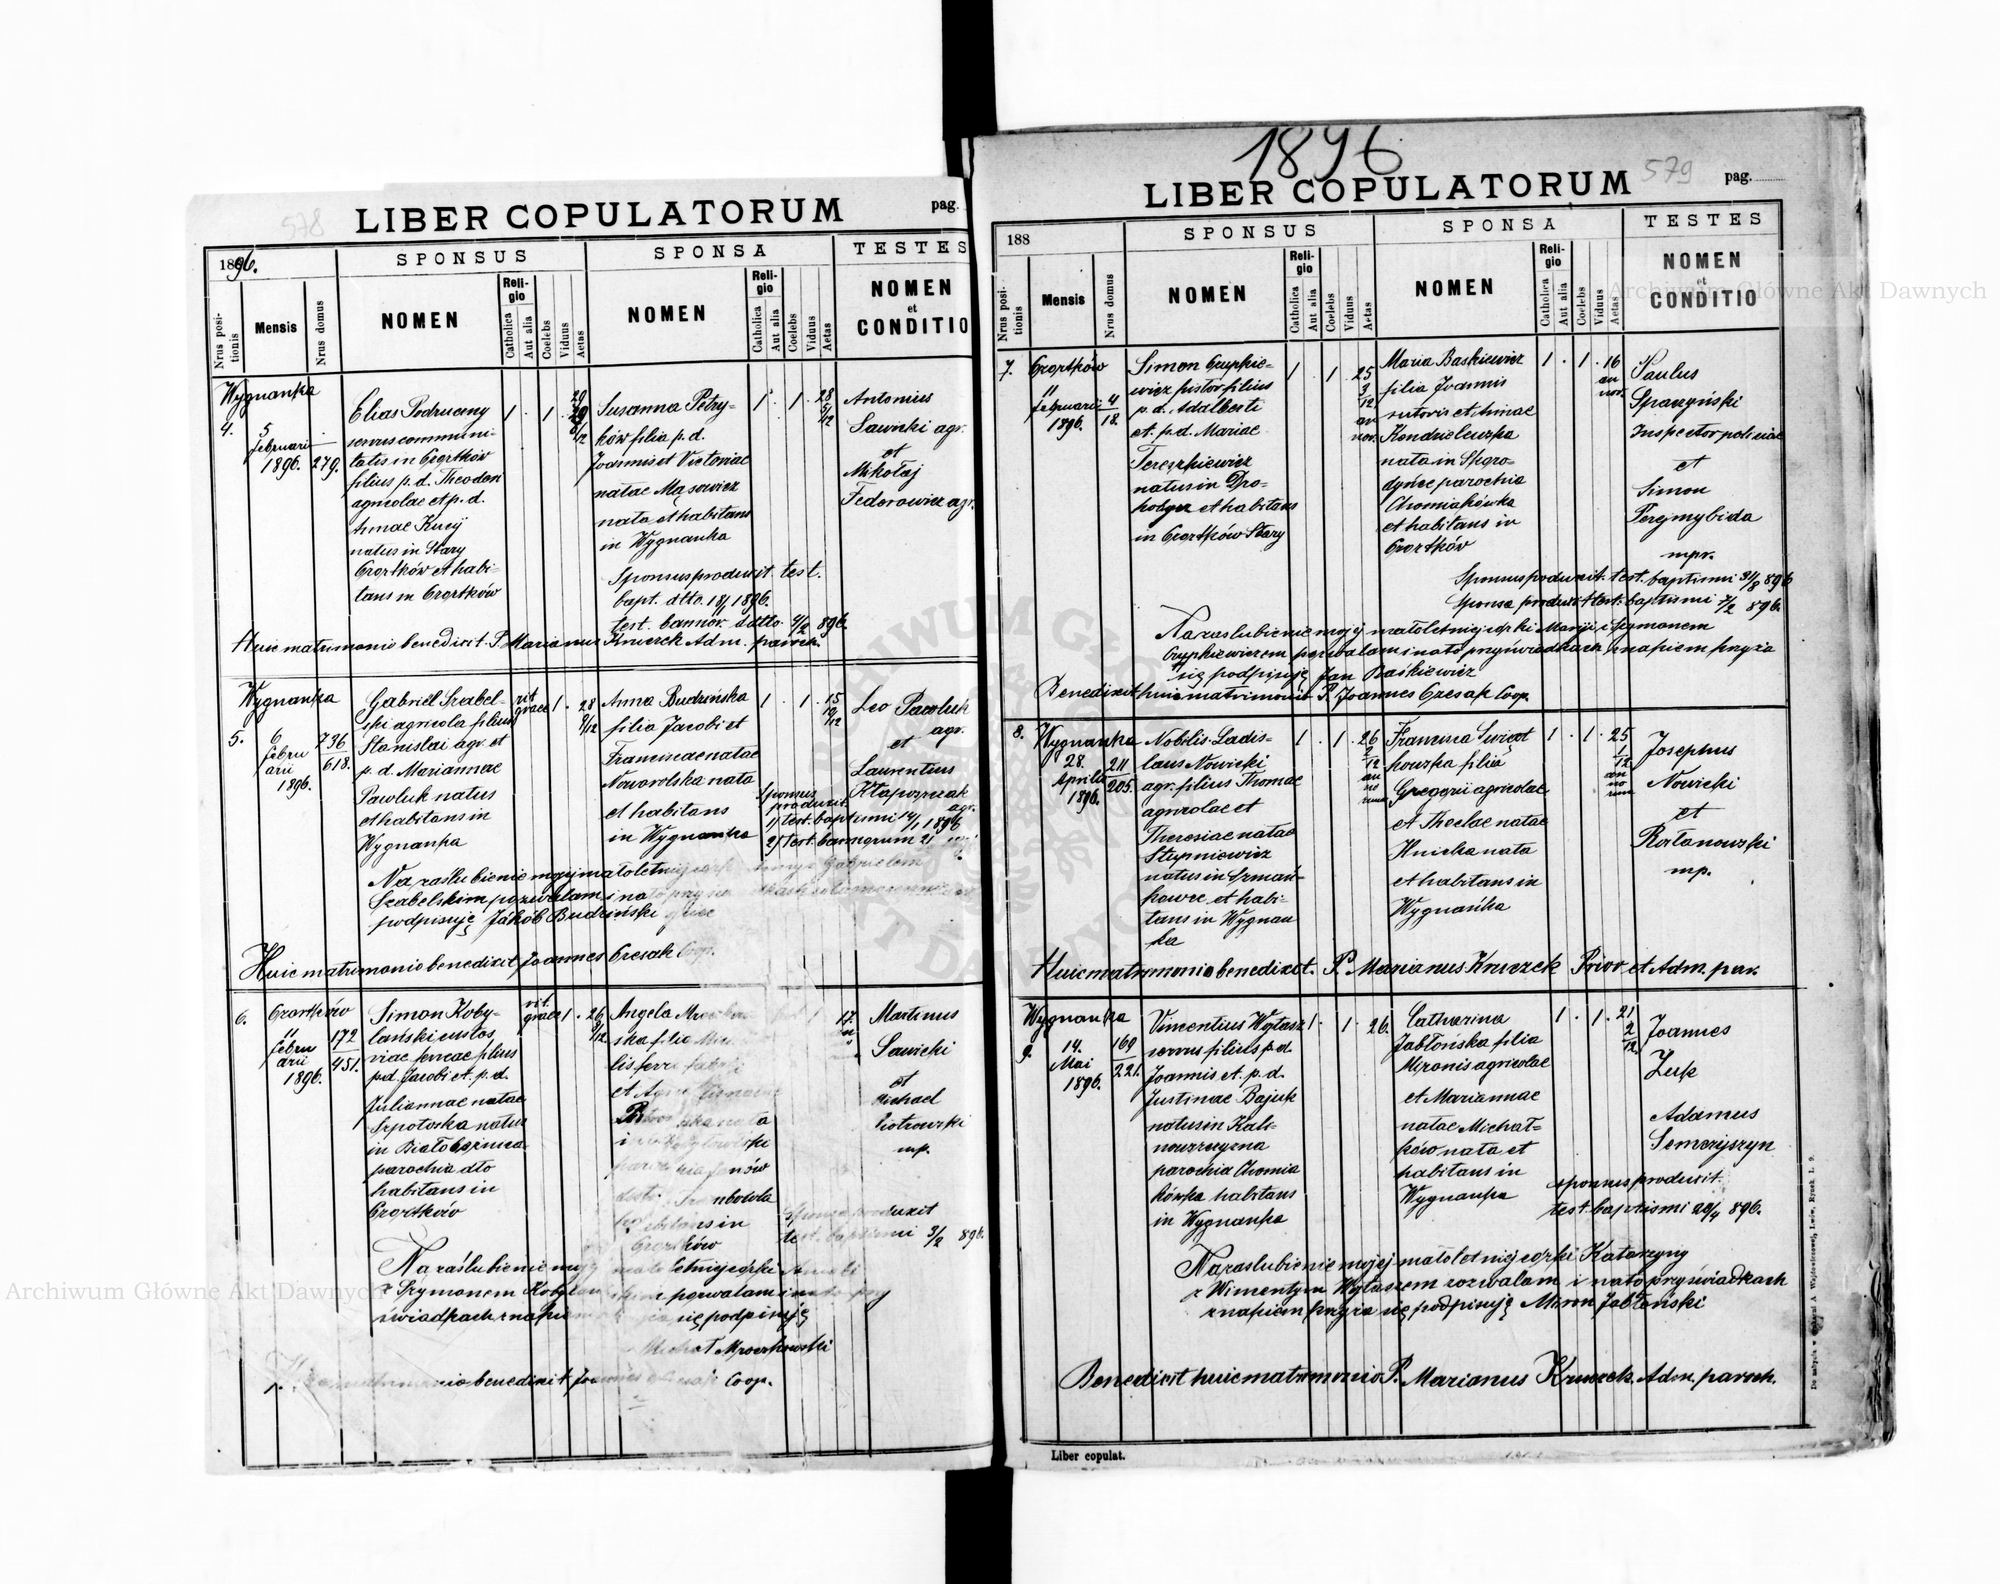 578
LIBER COPULATORUM
pag.
1896.
SPONSUS
SPONSA
TESTES
Nrus positionis
Mensis
Nrus domus
NOMEN
Religio
Catholica
Aut alia
Coelebs
Viduus
Aetas
NOMEN
Religio
Catholica
Aut alia
Coelebs
Viduus
Aetas
NOMEN
et
CONDITIO
Wygnanka
4.
5
februarii
1896.
279.
Elias Podruczny
servus communi-
tatis in Czortków
filius p. d. Theodori
agricolae et p. d.
Annae Kucij
natus in Stary
Czortków et habi-
tans in Czortków
1 . 1 . 29
8/12
Susanna Petry-
ków filia p. d.
Joannis et Victoriae
natae Mąsowicz
nata et habitans
in Wygnanka
1 . 1 . 28
5/12
Antonius
Sawicki agr.
et
Mikołaj
Fedorowicz agr.
Sponsus produxit test.
bapt. dtto. 18/1 1896.
test. bannor. ddtto. 4/2 896.
Huic matrimonio benedixit P. Marianus Kruczek Adm. paroch.
Wygnanka
5.
6
febru
arii
1896.
736
618.
Gabriël Szabel-
ski agricola filius
Stanislai agr. et
p. d. Mariannae
Pawluk natus
et habitans in
Wygnanka
rit.
graec 1 . 28
8/12
Anna Budzińska
filia Jacobi et
Franciscae natae
Nowowolska nata
et habitans
in Wygnanka
1 . 1 . 15
10/12
Leo Pawluk
agr.
et
Laurentius
Kłaposzczak
agr.
Sponsus
produxit
1) test. baptismi 14/1 1896
2) test. bannorum 2/
Na zaślubienie mojej małoletniej córki Anny z Gabrielem
Szabelskim pozwalam i na to przy
podpisuję Jakób Budziński
Huic matrimonio benedixit Joannes Czesak Coop.
6.
Czortków
11
febru
arii
1896.
172
451.
Simon Koby-
lański custos
viae ferreae filius
p. d. Jacobi et p. d.
Juliannae natae
Szpotoska natus
in Białobożnica
parochia dto
habitans in
Czortków
rit.
graec 1 . 26
8/12
Angela
ska filia
lis
et
nata
in
habitans in
Czortków
17.
Martinus
Sawicki
et
Michael
Piotrowski
mp.
Sponsa produxit
test. baptismi 3/2 896.
Na zaślubienie mojej małoletniej córki Anieli
z Szymonem Kobylańskim pozwalam i na to przy
świadkach się podpisuję
Michał Mroczkowski
matrimonio benedixit Joannes Czesak Coop.
1896
LIBER COPULATORUM
579
pag.
188
SPONSUS
SPONSA
TESTES
Nrus positionis
Mensis
Nrus domus
NOMEN
Religio
Catholica
Aut alia
Coelebs
Viduus
Aetas
NOMEN
Religio
Catholica
Aut alia
Coelebs
Viduus
Aetas
NOMEN
et
CONDITIO
7.
Czortków
11
februarii
1896.
4
18.
Simon Czypkie-
wicz pistor filius
p. d. Adalberti
et p. d. Mariae
Tereszkiewicz
natus in Dro-
hobycz et habitans
in Czortków Stary
1 . 1 . 25
3/12
an
nor.
Maria Baskiewicz
filia Joannis
sutoris et Annae
Kondzielewska
nata in Skoro-
dyńce parochia
Chomiakówka
et habitans in
Czortków
1 . 1 . 16
an
nor.
Paulus
Sparzyński
Inspector policiae
et
Simon
Perejmybida
mpr.
Sponsus produxit test. baptismi 31/8 896
Sponsa produxit test. baptismi 7/2 896.
Na zaślubienie mojej małoletniej córki Maryi z Szymonem
Czypkiewiczem pozwalam i na to przy świadkach znakiem krzyża
się podpisuję Jan Baśkiewicz
Benedixit huic matrimonio P. Joannes Czesak Coop.
8.
Wygnanka
28.
Aprilis
1896.
211
205.
Nobilis Ladis-
laus Nowicki
agr. filius Thomae
agricolae et
Theresiae natae
Stupniewicz
natus in Szmań-
kowce et habi-
tans in Wygnan
ka
1 . 1 . 26
2/12
an
no
rum
Francisca Świąt
kowska filia
Gregorii agricolae
et Theclae natae
Hnicka nata
et habitans in
Wygnańka
1 . 1 . 25
1/12
an
no
rum
Josephus
Nowicki
et
Rozłanowski
mp.
Huic matrimonio benedixit. P. Marianus Kruczek Prior et Adm. par.
Wygnanka
9.
14.
Mai
1896.
169
221.
Vincentius Wojtasz
servus filius p. d.
Joannis et. p. d.
Justinae Bajuk
natus in Kali-
nowszczyzna
parochia Chomia
kówka habitans
in Wygnanka
1 . 1 . 26.
Catharina
Jabłońska filia
Mironis agricolae
et Mariannae
natae Michał-
ków nata et
habitans in
Wygnanka
1 . 1 . 21
2/12
Joannes
Zuk
Adamus
Semczyszyn
sponsus produxit
test. baptismi 29/4 896.
Na zaślubienie mojej małoletniej córki Katarzyny
z Wincentym Wojtaszem zezwalam i na to przy świadkach
znakiem krzyża się podpisuję Miron Jabłoński
Benedixit huic matrimonio P. Marianus Kruczek Adm. paroch.
Liber copulat.
Archiwum Główne Akt Dawnych
Archiwum Główne Akt Dawnych